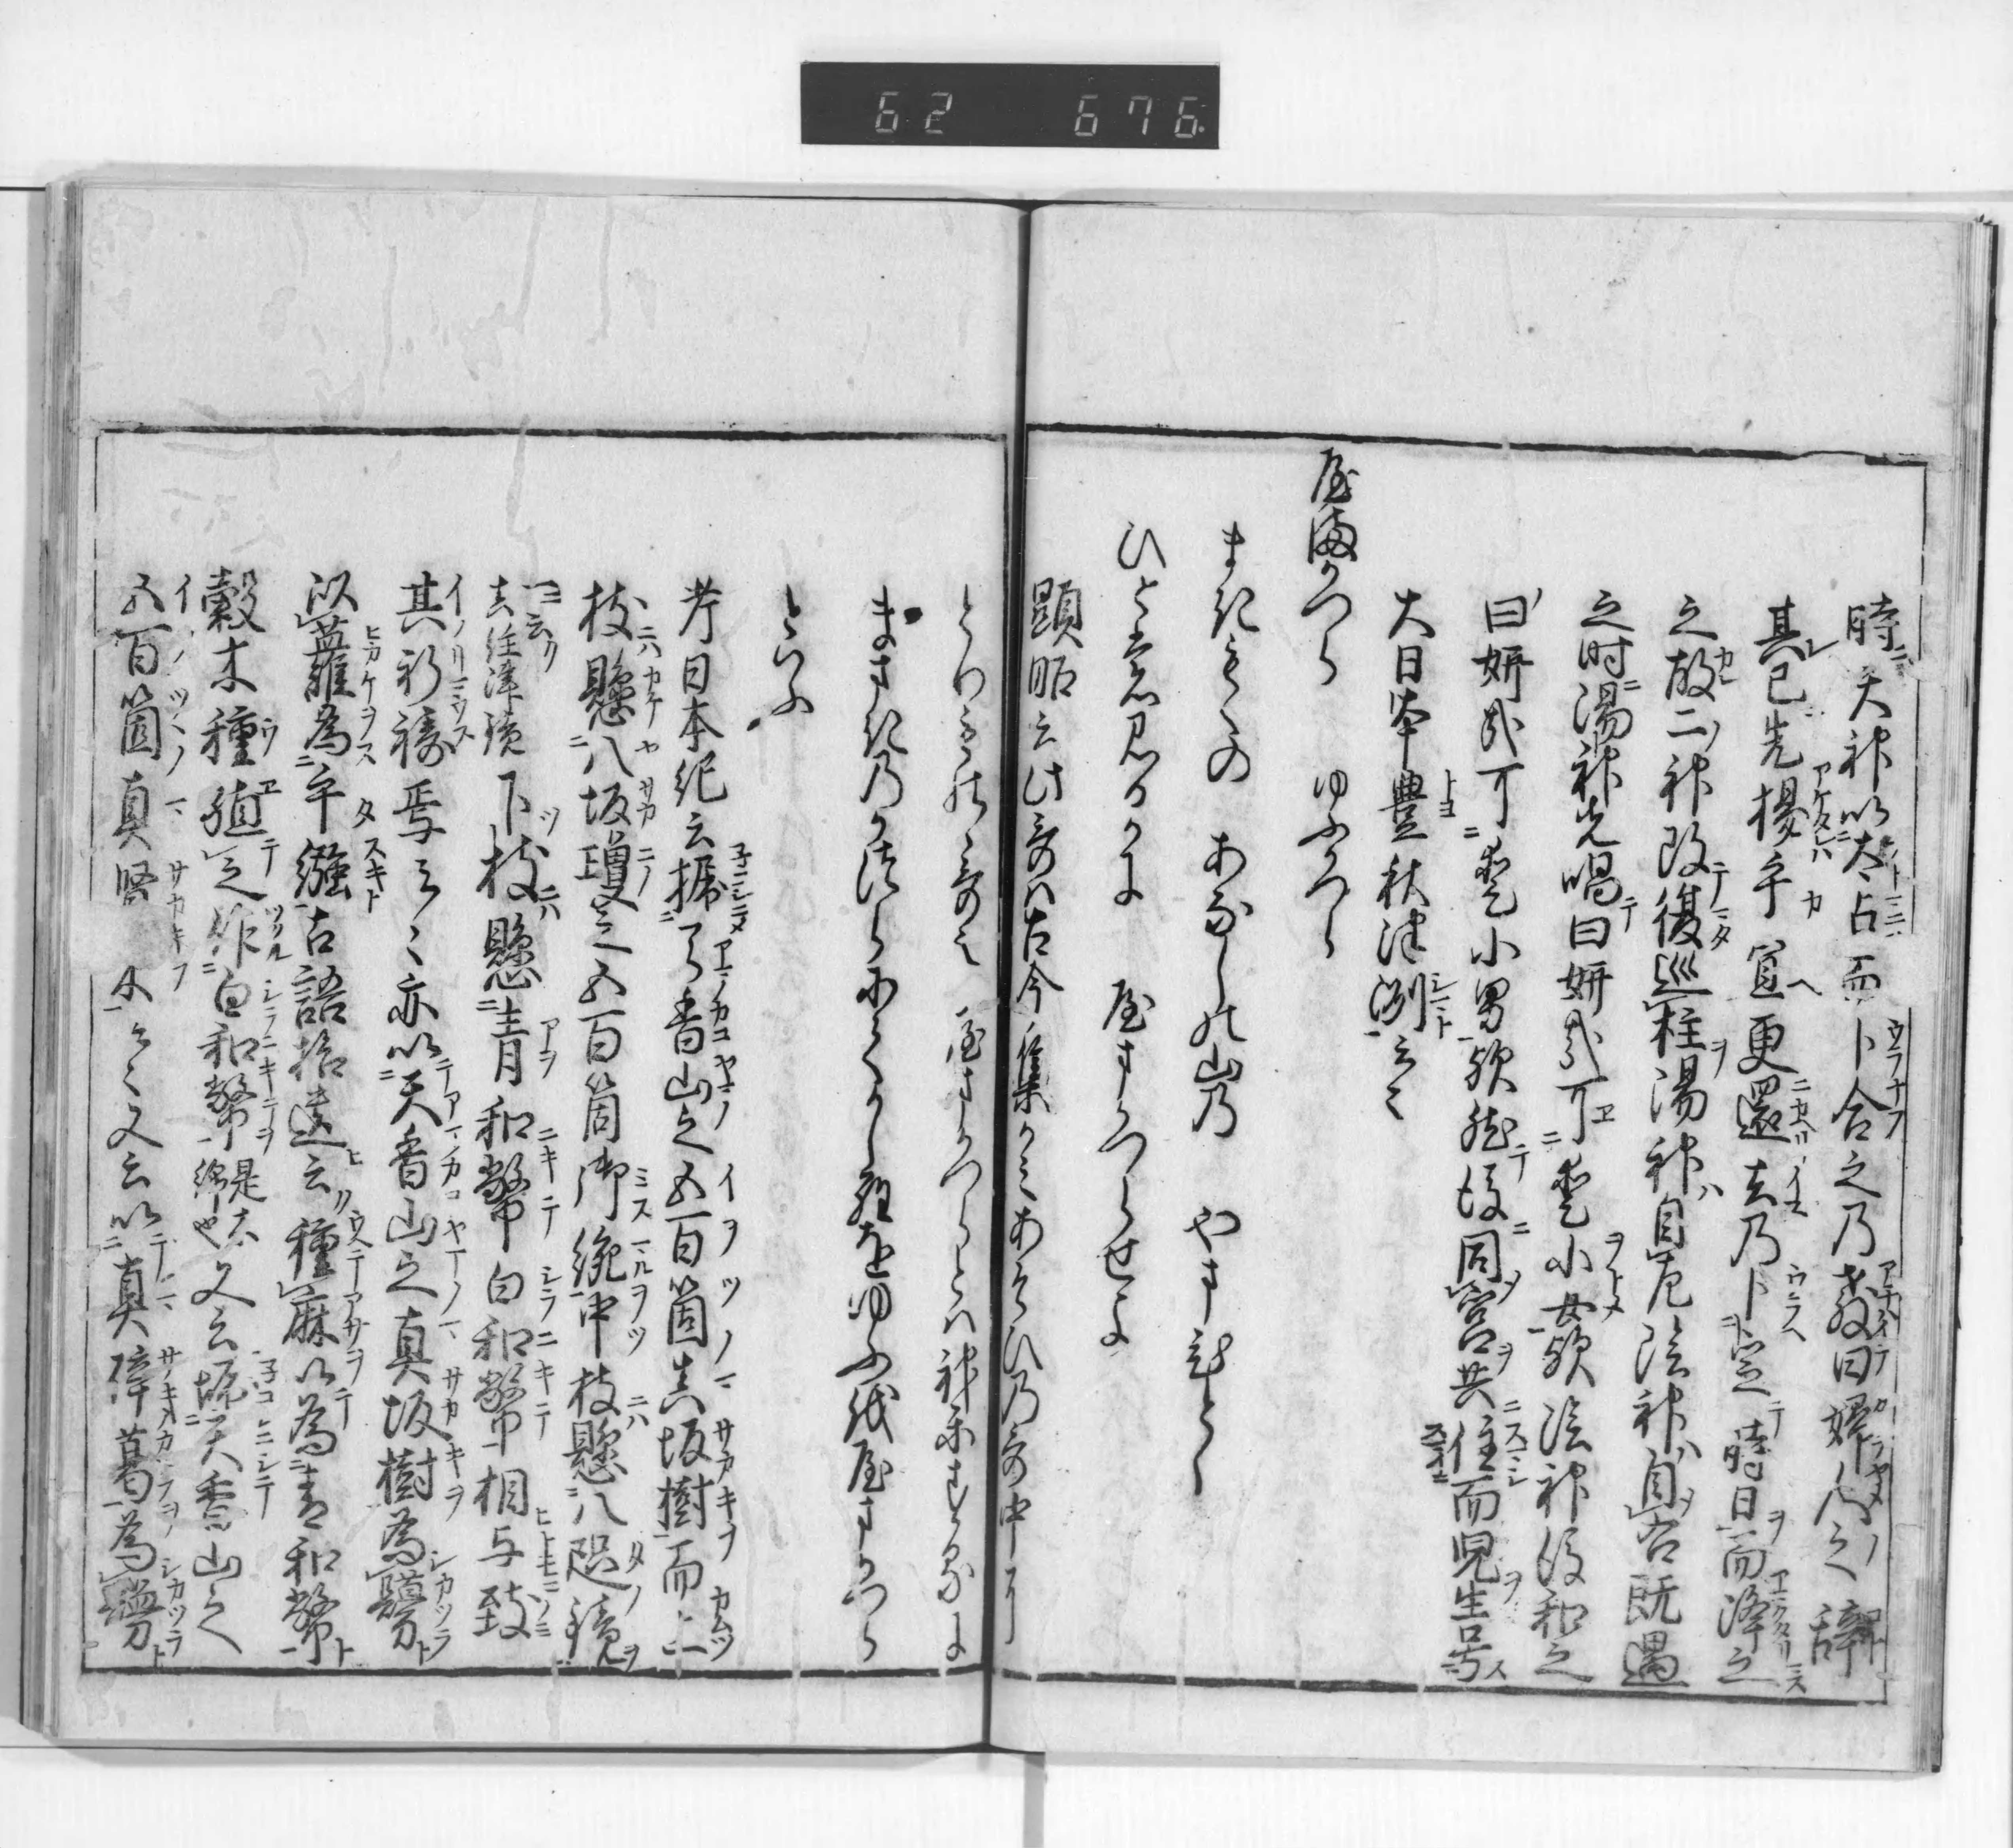 62 676
時天神以太占而卜合之乃教曰婦人之辞
其已先揚乎宜更還去乃卜定時日而降之
之故二神改復巡柱陽神自左陰神自右既遇
之时陽神先唱曰妍哉可愛小女欤陰神後和之
曰妍哉可愛小男欤然後同宮共住而児生号
大日本豊秋津洲云々
屋満かつら ゆふかつら
まきもくの あなしの山乃 やま人と
ひともみるかに 屋まかつらせよ
顕昭云此哥は古今集かみあそひの哥の中に
とりものゝ哥也 屋まかつらとは神楽する
まさきのかつら
といふ
考日本紀云掘天香山之五百箇真坂樹而上
枝懸八坂瓊之五百箇御統中枝懸八咫鏡
一云真経津鏡下枝懸青和幣白和幣相与致
其祈祷焉云々亦以天香山之真坂樹為鬘
以蘿為手繦古語拾遺云種麻以為青和幣
穀木種殖之作白和幣是木綿也又云掘天香山之
五百箇真賢木云々又云以真辟葛為鬘